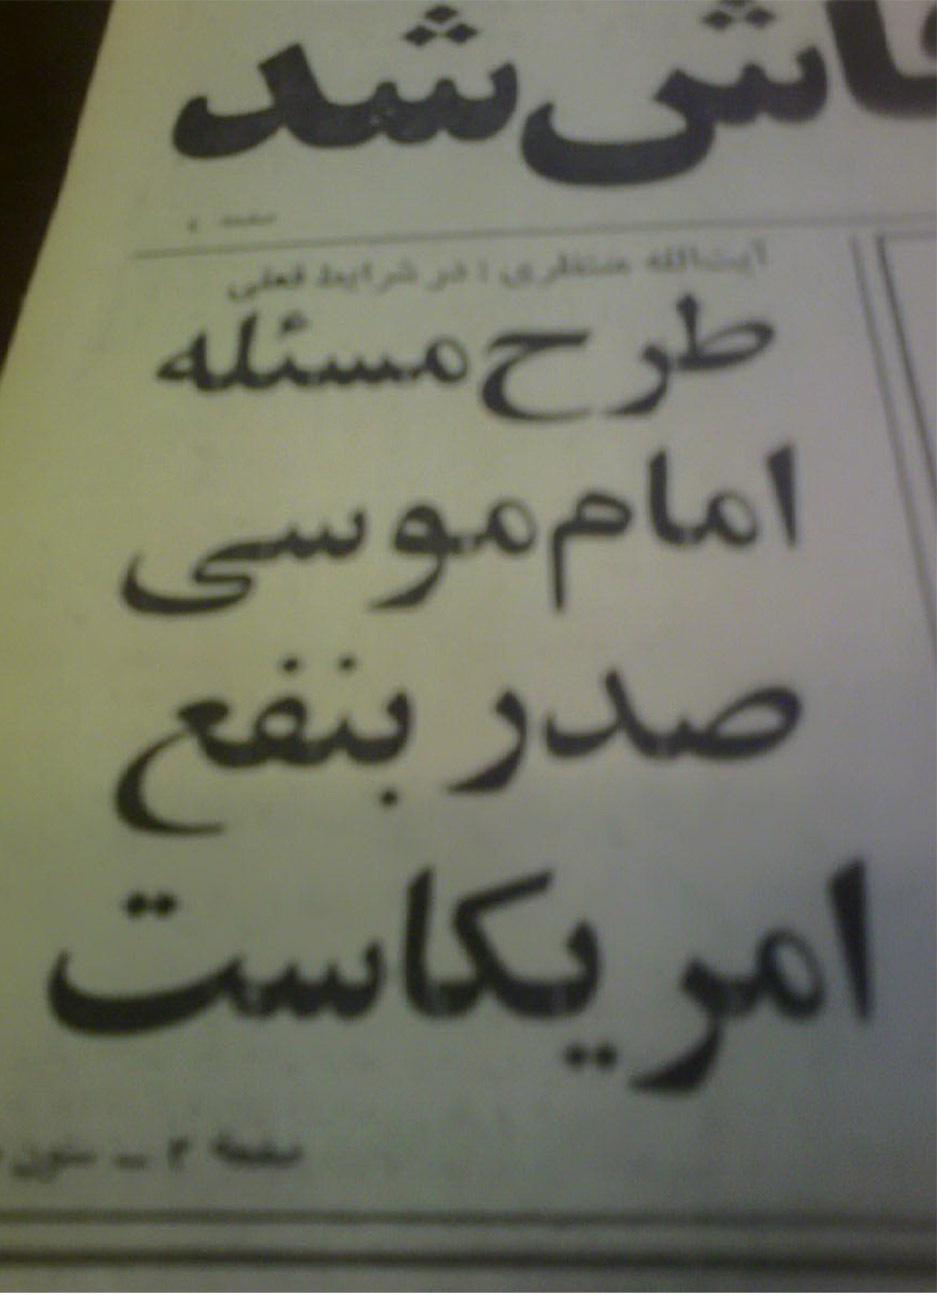 فاش شد
صفحه
آیت‌الله منتظری : در شرایط فعلی
طرح مسئله
امام موسی
صدر بنفع
امریکاست
صفحهٔ ۲ ــ ستون